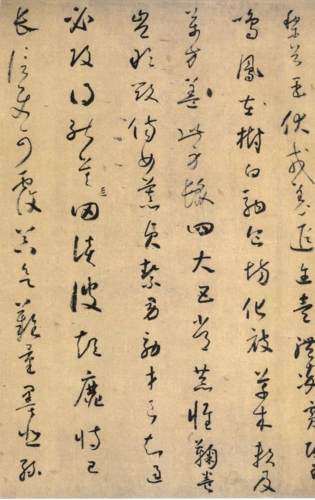 黎首臣伏戎羌遐邇壹體率賓歸王
鳴鳳在樹白駒食場化被草木賴及
萬方蓋此身髮四大五常恭惟鞠養
豈敢毀傷女慕貞絜男效才良知過
必改得能莫忘罔談彼短靡恃己
長信使可覆器欲難量墨悲絲